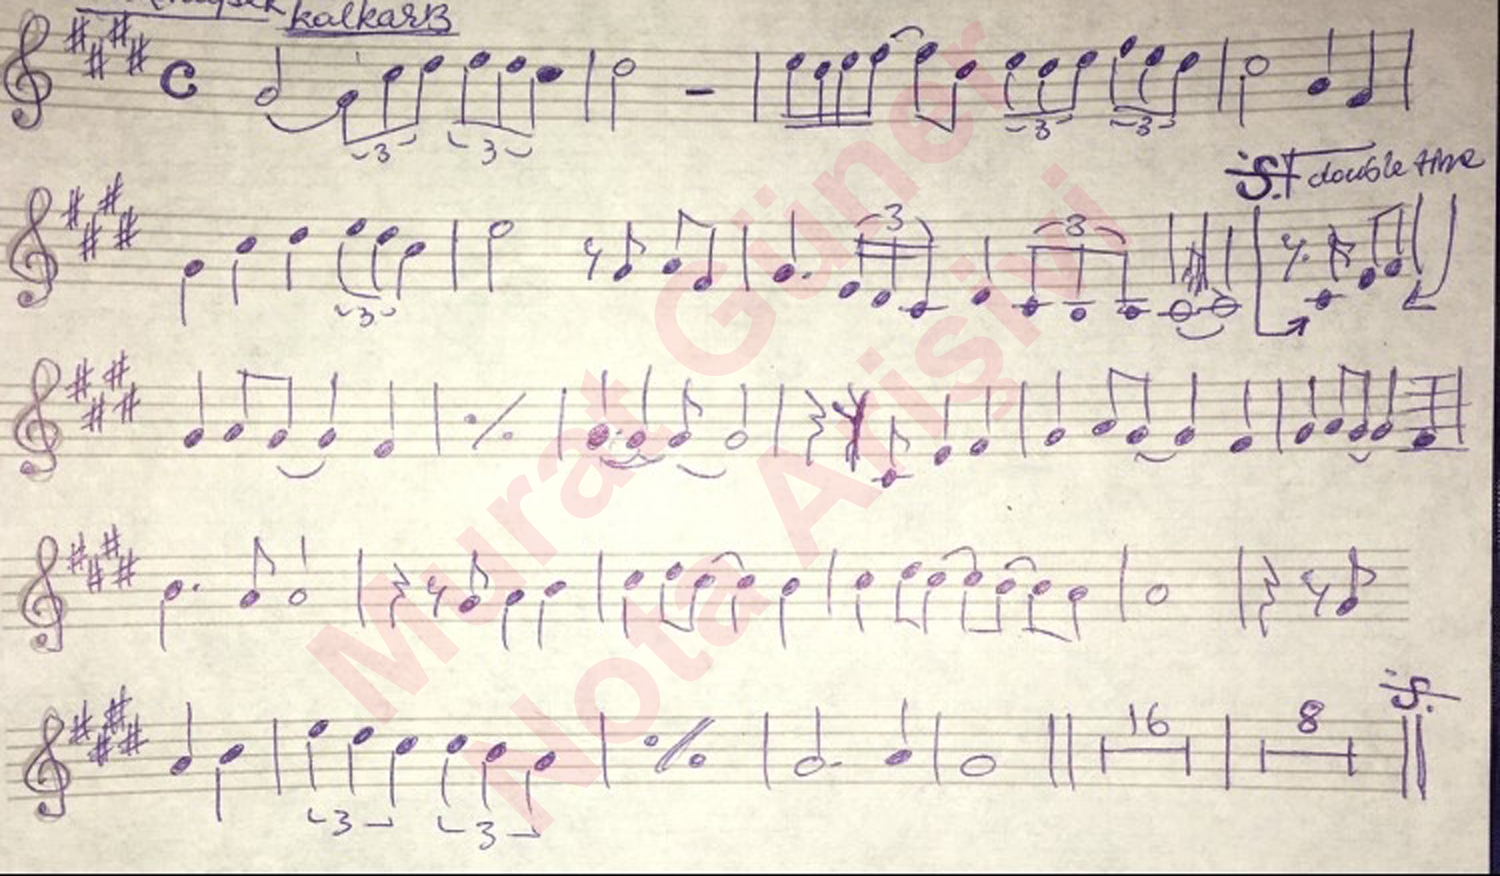 kalkarB
C
3 3 3 3
S. double time
3 3 3
3 3
16 8 S.
Murat Güner
Nota Arişivi